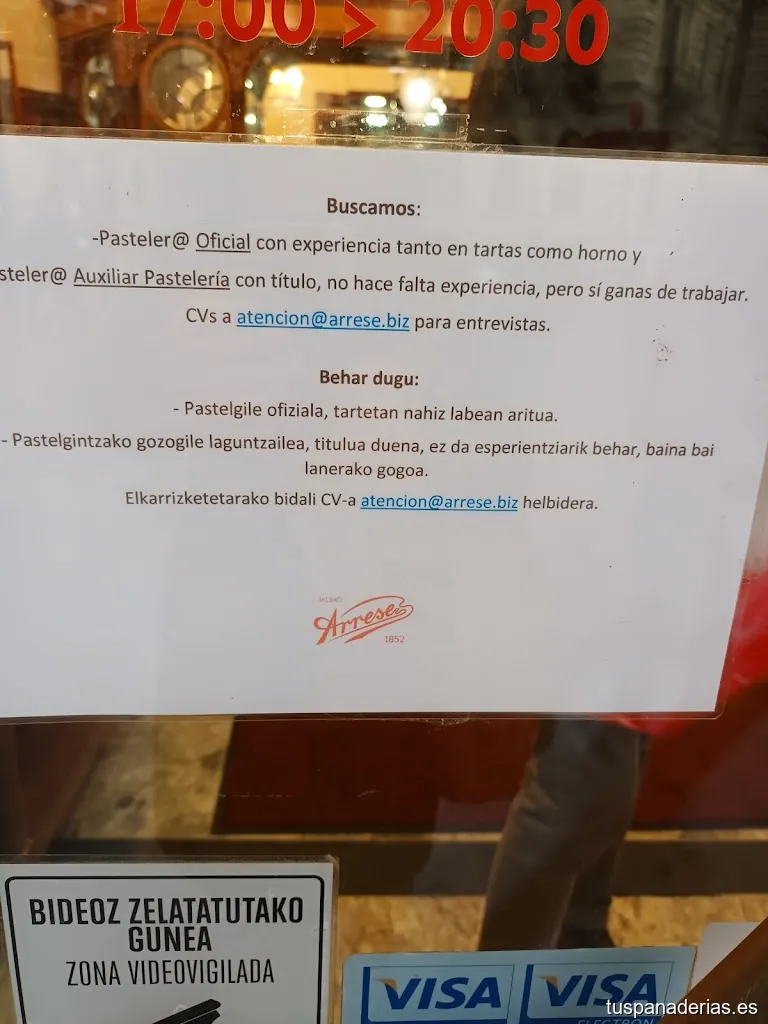 17:00 > 20:30
Buscamos:
-Pasteler@ Oficial con experiencia tanto en tartas como horno y
steler@ Auxiliar Pastelería con título, no hace falta experiencia, pero sí ganas de trabajar.
CVs a atencion@arrese.biz para entrevistas.
Behar dugu:
- Pastelgile ofiziala, tartetan nahiz labean aritua.
- Pastelgintzako gozogile laguntzailea, titulua duena, ez da esperientziarik behar, baina bai
lanerako gogoa.
Elkarrizketetarako bidali CV-a atencion@arrese.biz helbidera.
BILBAO
Arrese
1852
BIDEOZ ZELATATUTAKO
GUNEA
ZONA VIDEOVIGILADA
VISA VISA
ELECTRON
tuspanaderias.es